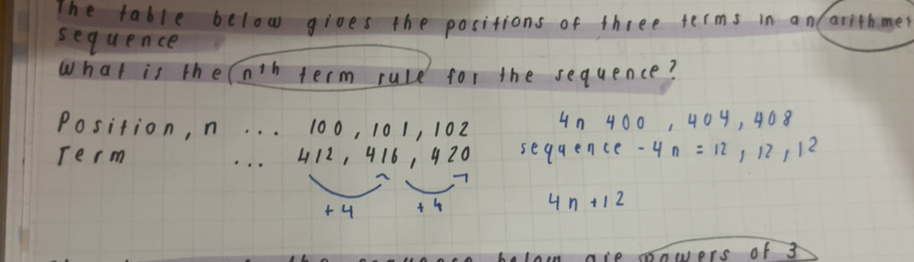 The table below gives the positions of three terms in an arithmet
sequence
What is the nth term rule for the sequence?
Position, n ... 100, 101, 102
Term ... 412, 416, 420
+4 +4
4n 400, 404, 408
sequence - 4n = 12, 12, 12
4n + 12
below are powers of 3